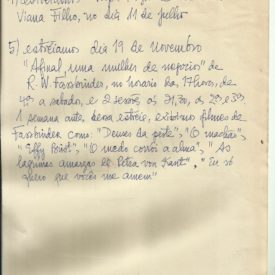 Viana Filho, no dia 11 de julho
5) estreiamos dia 19 de novembro
"Afinal, uma mulher de negócios" de
R. W. Fassbinder, no horário das 17 horas, de
4ª a sábado, e 2 sessões às 21,30, às 2ªs e 3ªs
1 semana antes, dessa estréia, exibimos filmes de
Fassbinder como: "Deuses da peste"; "O machão",
"Effy Briest"; "O medo corrói a alma"; "As
lágrimas amargas de Petra von Kant", "Eu só
quero que vocês me amem"